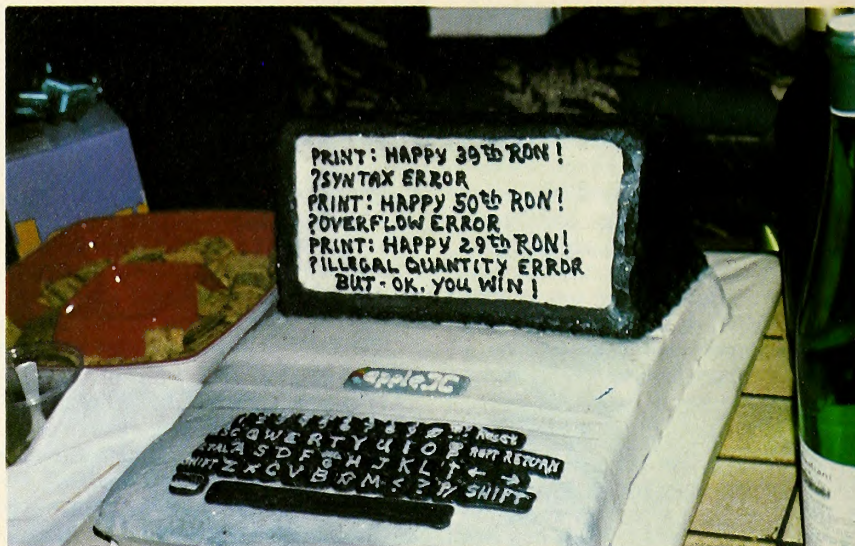 PRINT: HAPPY 39th RON!
?SYNTAX ERROR
PRINT: HAPPY 50th RON!
?OVERFLOW ERROR
PRINT: HAPPY 29th RON!
?ILLEGAL QUANTITY ERROR
BUT - OK, YOU WIN!
apple
RESET
Q W E R T Y U I O P REPT RETURN
A S D F G H J K L ↑ ← →
SHIFT Z X C V B M < > ?/ SHIFT